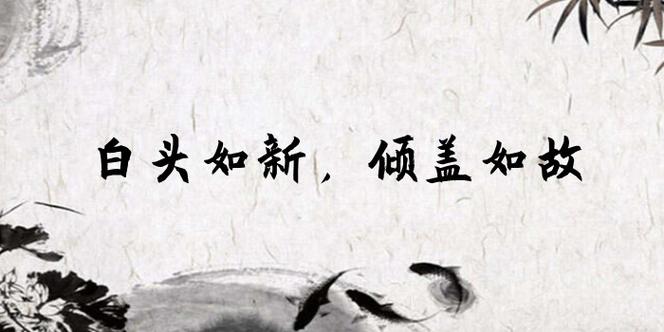 白头如新，倾盖如故